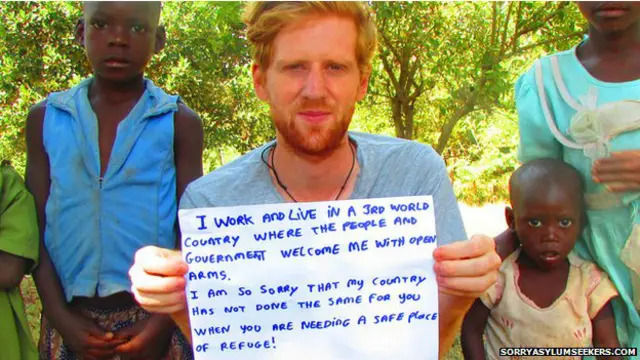 I WORK AND LIVE IN A 3RD WORLD
COUATRY WHERE THE PEOPLE AND
GOVERNMENT WELCOME ME WITH OPEN
ARMS.
I AM SO SORRY THAT MY COUNTRY
HAS NOT DONE THE SAME FOR YOU
WHEN YOU ARE NEEDING A SAFE PLACE
OF REFUGE!
SORRYASYLUMSEEKERS.COM